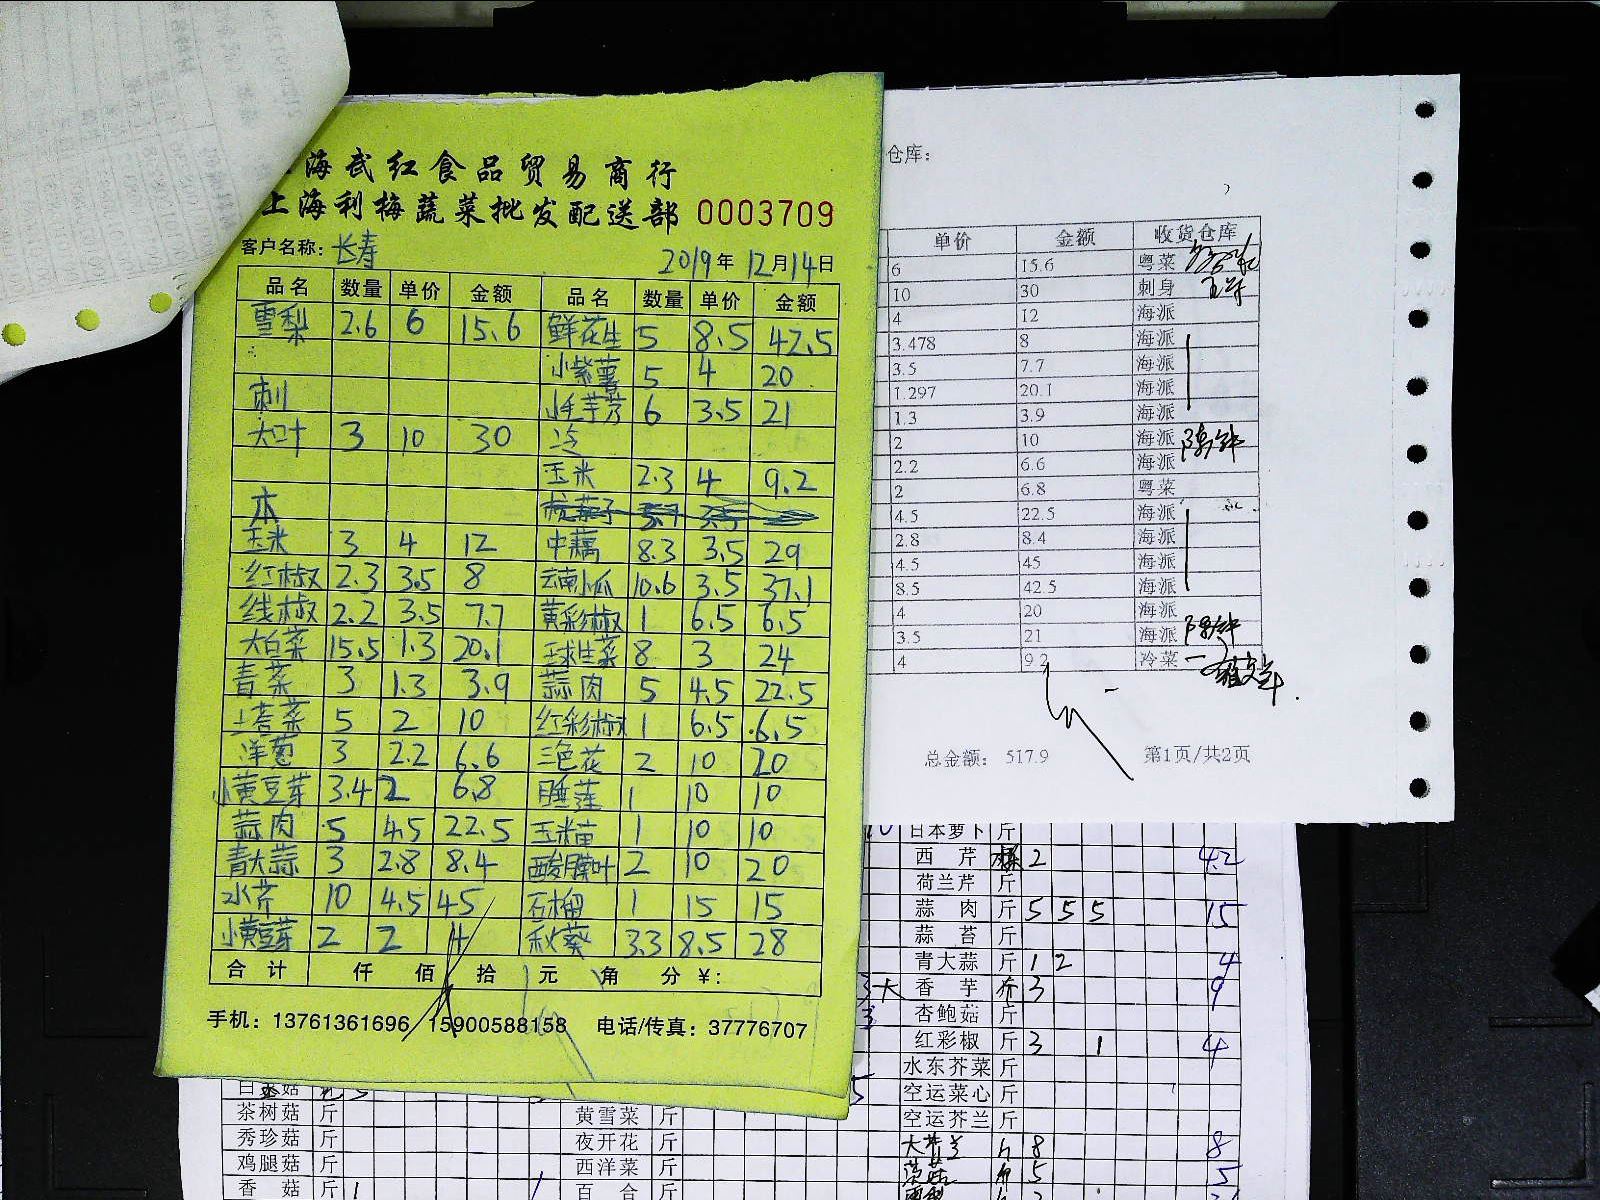 海武红食品贸易商行
上海利梅蔬菜批发配送部 0003709
客户名称：长寿 2019年12月14日
品名 数量 单价 金额 品名 数量 单价 金额
雪梨 2.6 6 15.6 鲜花生 5 8.5 42.5
小紫薯 5 4 20
刺 小毛芋艿 6 3.5 21
大叶 3 10 30 冷
玉米 2.3 4 9.2
本
玉米 3 4 12 中藕 8.3 3.5 29
红椒 2.3 3.5 8 云南小瓜 10.6 3.5 37.1
线椒 2.2 3.5 7.7 黄彩椒 1 6.5 6.5
大白菜 15.5 1.3 20.1 球生菜 8 3 24
青菜 3 1.3 3.9 蒜肉 5 4.5 22.5
塔菜 5 2 10 红彩椒 1 6.5 6.5
洋葱 3 2.2 6.6 三色花 2 10 20
小黄豆芽 3.4 2 6.8 睡莲 1 10 10
蒜肉 5 4.5 22.5 玉米苗 1 10 10
青大蒜 3 2.8 8.4 酸膜叶 2 10 20
水芹 10 4.5 45 石榴 1 15 15
小黄豆芽 2 2 4 秋葵 3.3 8.5 28
合计 仟 佰 拾 元 角 分 ¥：
手机：13761361696 15900588158 电话/传真：37776707
仓库：
单价 金额 收货仓库
6 15.6 粤菜
10 30 刺身
4 12 海派
3.478 8 海派
3.5 7.7 海派
1.297 20.1 海派
1.3 3.9 海派
2 10 海派
2.2 6.6 海派
2 6.8 粤菜
4.5 22.5 海派
2.8 8.4 海派
4.5 45 海派
8.5 42.5 海派
4 20 海派
3.5 21 海派
4 9.2 冷菜
总金额：517.9 第1页/共2页
日本萝卜 斤
西芹 2 4.2
荷兰芹 斤
蒜肉 斤 5 5 5 15
蒜苔 斤
青大蒜 斤 1 2 4
香芋 斤 3 9
杏鲍菇 斤
红彩椒 斤 3 1 4
水东芥菜 斤
空运菜心 斤
茶树菇 斤 黄雪菜 斤 空运芥兰 斤
秀珍菇 斤 夜开花 斤 8 8
鸡腿菇 斤 西洋菜 斤 5 5
香菇 斤 1 百合 斤